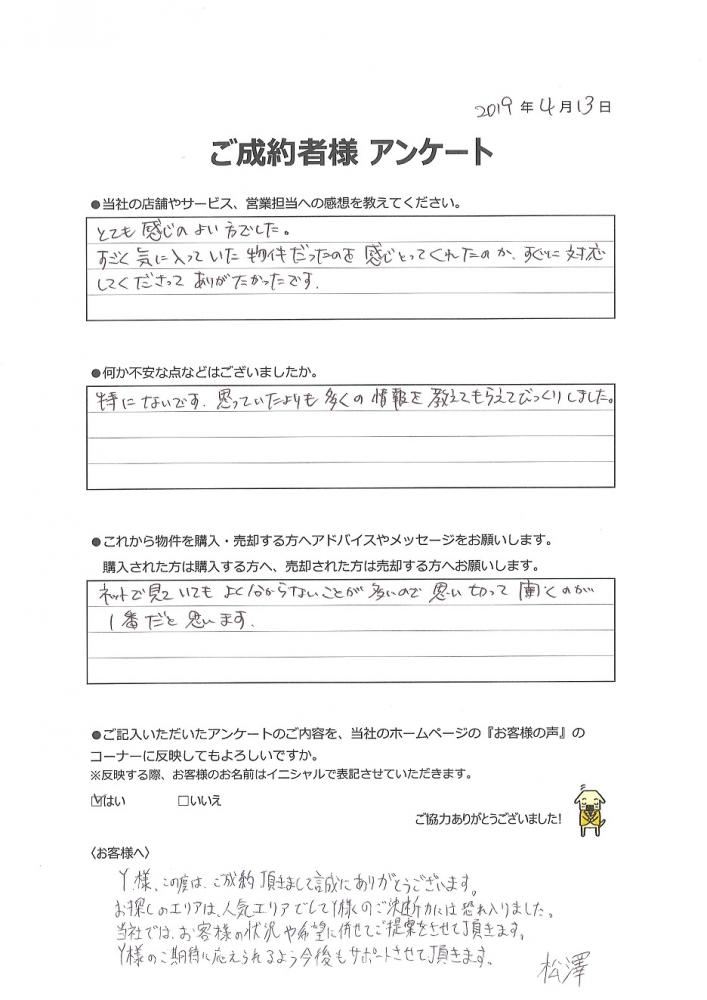 2019年4月13日
ご成約者様 アンケート
●当社の店舗やサービス、営業担当への感想を教えてください。
とても感じのよい方でした。
すごく気に入っていた物件だったのを感じとってくれたのか、すぐに対応
してくださって ありがたかったです.
●何か不安な点などはございましたか。
特にないです. 思っていたよりも多くの情報を教えてもらえてびっくりしました。
●これから物件を購入・売却する方へアドバイスやメッセージをお願いします。
購入された方は購入する方へ、売却された方は売却する方へお願いします。
ネットで見ていてもよく分からないことが多いので思い切って聞くのが
1番だと思います.
●ご記入いただいたアンケートのご内容を、当社のホームページの『お客様の声』の
コーナーに反映してもよろしいですか。
※反映する際、お客様のお名前はイニシャルで表記させていただきます。
☑はい □いいえ
ご協力ありがとうございました!
〈お客様へ〉
Y様、この度は、ご成約頂きまして誠にありがとうございます。
お探しのエリアは、人気エリアでしてY様のご決断力には恐れ入りました。
当社では、お客様の状況や希望に併せてご提案をさせて頂きます。
Y様のご期待に応えられるよう今後もサポートさせて頂きます。
松澤